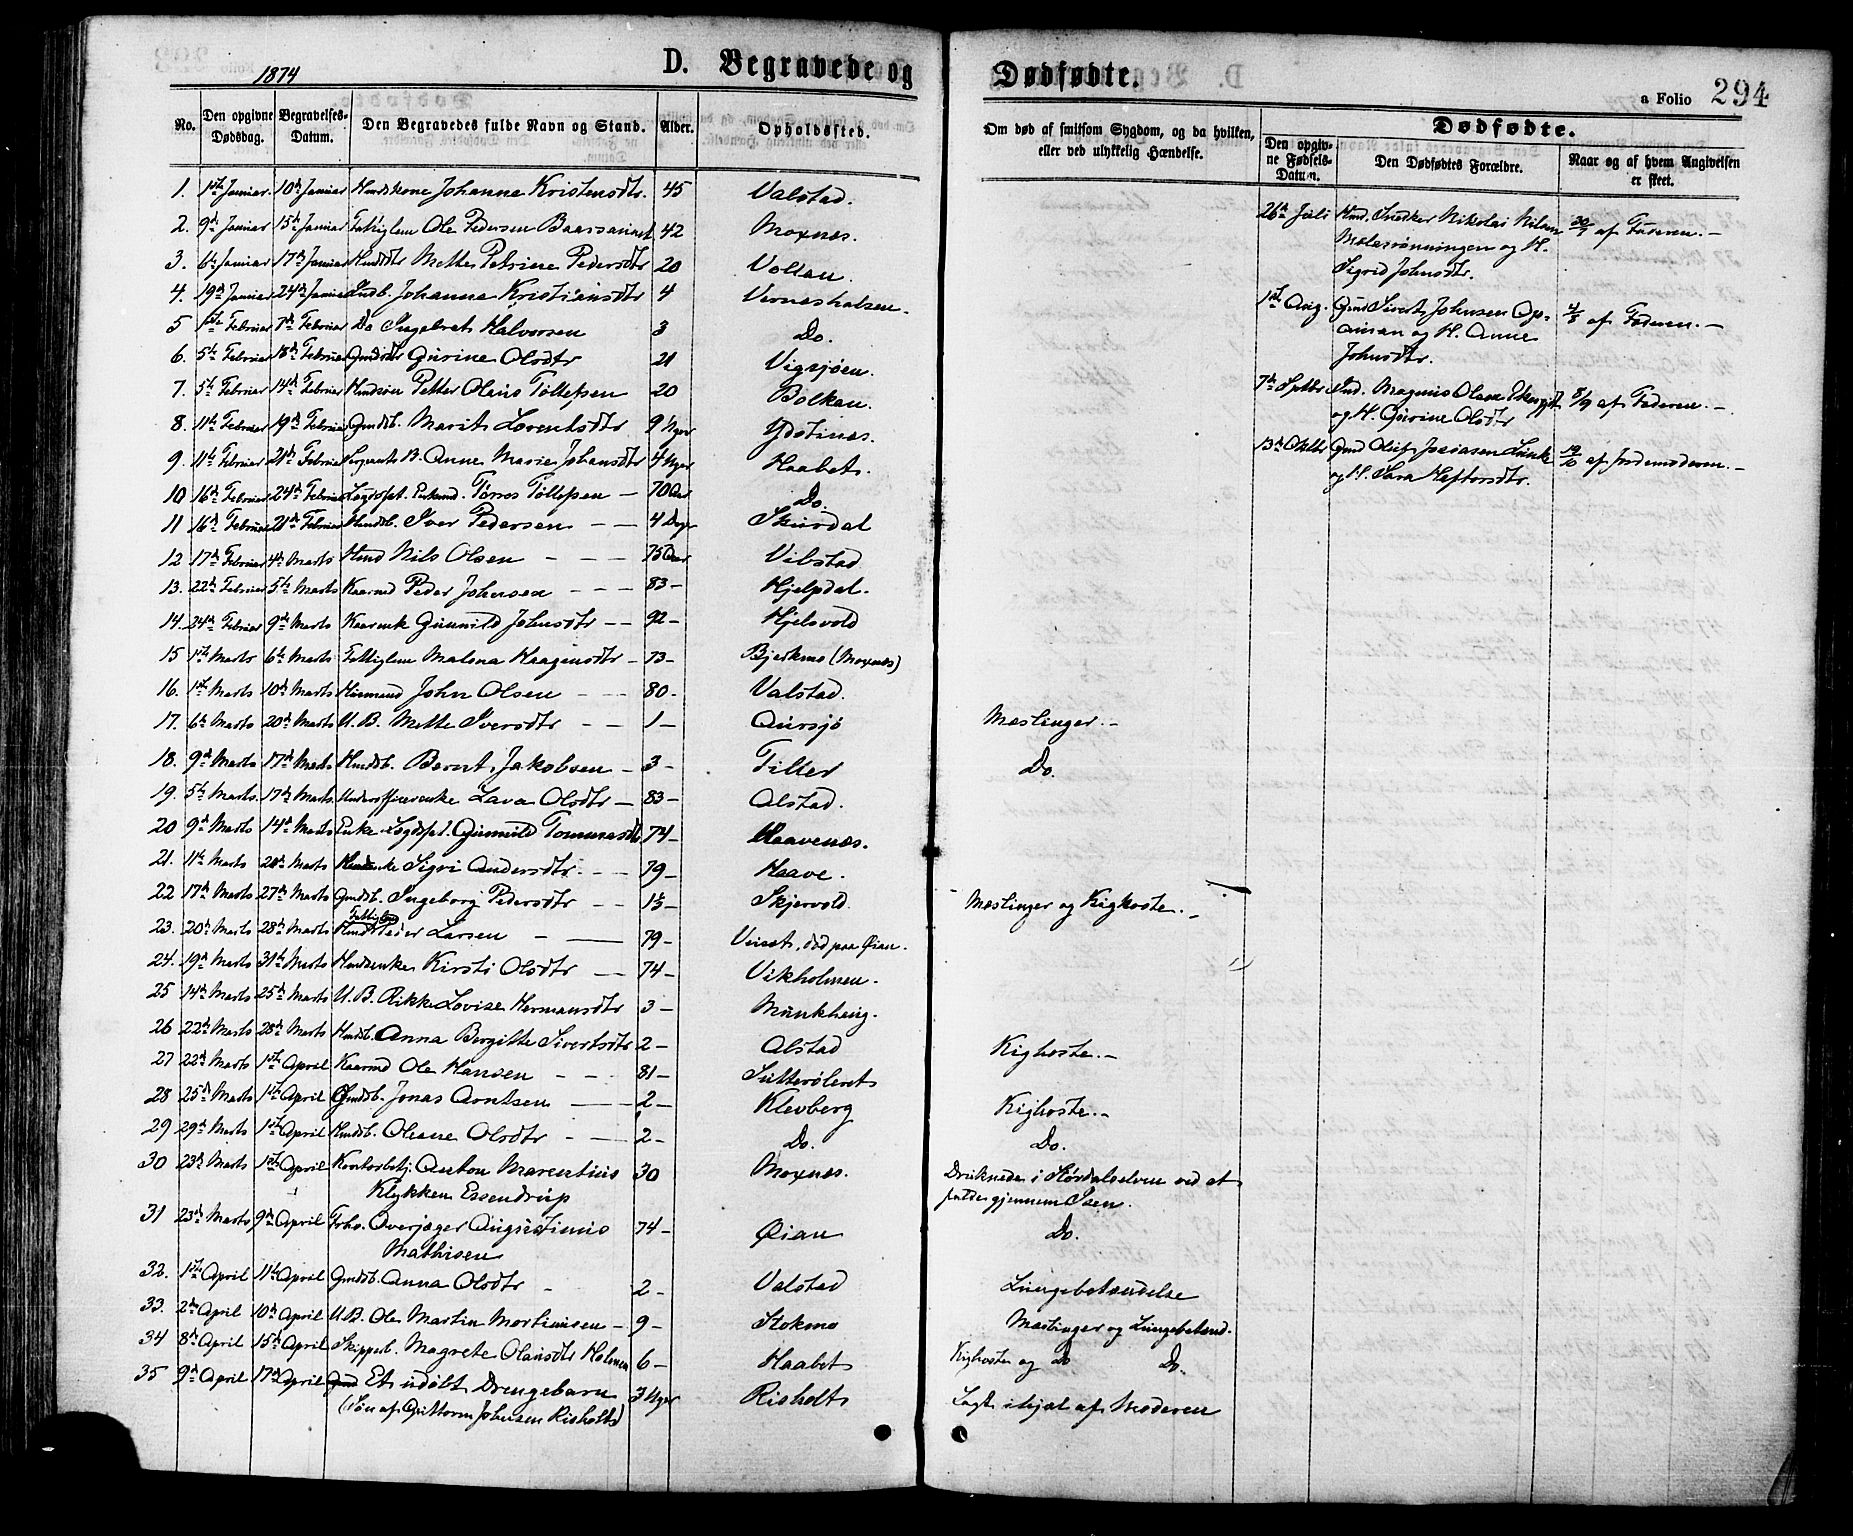 1874
D. Begravede og Dødfødte.
a Folio 294
No. Den opgivne Dødsdag. Begravelses-Datum. Den Begravedes fulde Navn og Stand. Alder. Opholdssted.
Om død af smitsom Sygdom, og da hvilken, eller ved ulykkelig Hændelse.
Dødfødte.
Den opgivne Fødsels-Datum. Den Dødfødtes Forældre. Naar og af hvem Angivelsen er skeet.
1. 1ste Januar. 10de Januar Johanne Kristensdtr. 45 Valstad.
2. 9de Januar 15de Januar Ole Pedersen 42 Moxnæs.
3. 6te Januar 17de Januar Mette Petrine Pedersdtr 20 Vollan.
4. 19de Januar 24de Januar Indb. Johanne Kristiansdtr 4 Vernæshalsen.
5 1ste Februar 7de Februar Do Ingebret Halvorsen 3 Do.
6. 5te Februar 18de Februar Gurine Olsdtr 21 Vigsjøen.
7. 5te Februar 14de Februar Petter Olaus Tollefsen 20 Bolkan.
8. 11te Februar 19de Februar Gmdsb. Marit Lorentsdtr 9 Uger Ydstinæs.
9. 11te Februar 21de Februar Sergeants B. Anne Marie Johansdtr 4 Uger Haabet.
10 16de Februar 24de Februar Tørres Tollefsen – 70 Aar Do.
11 16de Februar 21de Februar Hmdsb. Iver Pedersen – – 4 Dage Skurdal
12 17de Februar 4de Marts Hmd Nils Olsen – – – 75 Aar Vibstad
13. 22de Februar 5te Marts Kaarmd Peder Johnsen – – – 83 – Hjelpdal.
14. 24de Februar 9de Marts Kaarenk Gunnild Johnsdtr – – 92 – Hjelsvold
15 1ste Marts 6te Marts Fattiglem Malena Haagensdtr – 73 – Bjerkmo (Moxnæs)
16. 1ste Marts 10de Marts Huusmand John Olsen – – – 80 – Valstad.
17. 6te Marts 20de Marts U. B. Mette Iversdtr – – 1 – Aursjø Mæslinger. –
18. 9de Marts 17de Marts Hmdsb. Bernt Jakobsen – 3 – Tiller Do.
19. 5te Marts. 17de Marts. Underofficerenke Lava Olsdtr – 83 – Alstad.
20 9de Marts 14de Marts Enke Lægdspl. Gunnild Tommasdtr 74 – Haavenæs.
21. 11te Marts 20de Marts Sigri Andersdtr. – – 79 – Haave.
22 17de Marts 27de Marts Gmdsb. Ingeborg Pedersdtr – – 1½ – Skjervold. Mæslinger og Kighoste. –
23. 20de Marts 28de Marts Fattiglem Hmd Peder Larsen – – 79 – død paa Øian.
24. 19de Marts 31te Marts Hmdsenke Kirsti Olsdtr – – 74 – Vikholmen.
25 14de Marts 25de Marts U. B. Rikke Lovise Hermansdtr 3 – Munkhaug.
26 22de Marts 28de Marts Hmdsb. Anna Birgitte Sivertsdtr 2 – Alstad Kighoste. –
27 22de Marts 1ste April Kaarmd Ole Hansen – – – 81 – Sutterøleret
28 25de Marts 1ste April Gmdsb. Jonas Arntsen – – 2 – Klevberg Kighoste. –
29 29de Marts 1ste April Hmdsb. Oleane Olsdtr – – 2 – Do. Do.
30 23de Marts 1ste April Kontorbetj. Anton Marentius Klykken Essendrup 30 Moxnæs. Druknede i Størdalselven ved at falde gjennem Isen.
31 23de Marts 9de April Frhv. Overjæger Augustinus Mathisen 74 – Øian Do.
32. 1ste April 11te April Gmdsb. Anna Olsdtr – 2 – Valstad Lungebetændelse
33. 2den April 10de April U.B. Ole Martin Mortensen – 9 – Stokmo Mæslinger og Lungebetænd.
34 8de April 15de April Skipperb. Magrete Olausdtr Holmen 6 – Haabet Kighoste og Do Do.
35 9de April 17de April Et udøbt Drengebarn (Søn af Guttorm Johnsen Risholt) 3 Uger Risholt Lagt ihjel af Moderen
26de Juli Hmd. Snedker Nikolai Nilsen Mælesrønningen og H. Sigrid Johnsdtr. 30/7 af Faderen. –
1ste Aug. Gmd Sivert Johnsen og H. Anne Johnsdtr. 4/8 af Faderen. –
7de Septbr Ind. Magnus Olsen og H. Gurine Olsdtr 8/9 af Faderen. –
13de Oktbr Gmd Oluf Josiasen Lunke og H. Sara Heftorsdtr. 19/10 af Jordemoderen. –